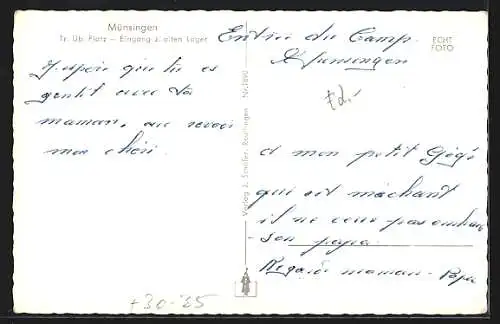 Münsingen
Tr. Üb. Platz – Eingang z. alten Lager
Entrée du Camp
Munsingen
ECHT
FOTO
J'espère que tu es
gentil avec ta
maman, au revoir
mon chéri.
Verlag J. Streifler, Reutlingen
a mon petit Gégé
qui est méchant
il ne veux pas embrasser
son papa.
Regarde maman - Papa
+30-'55